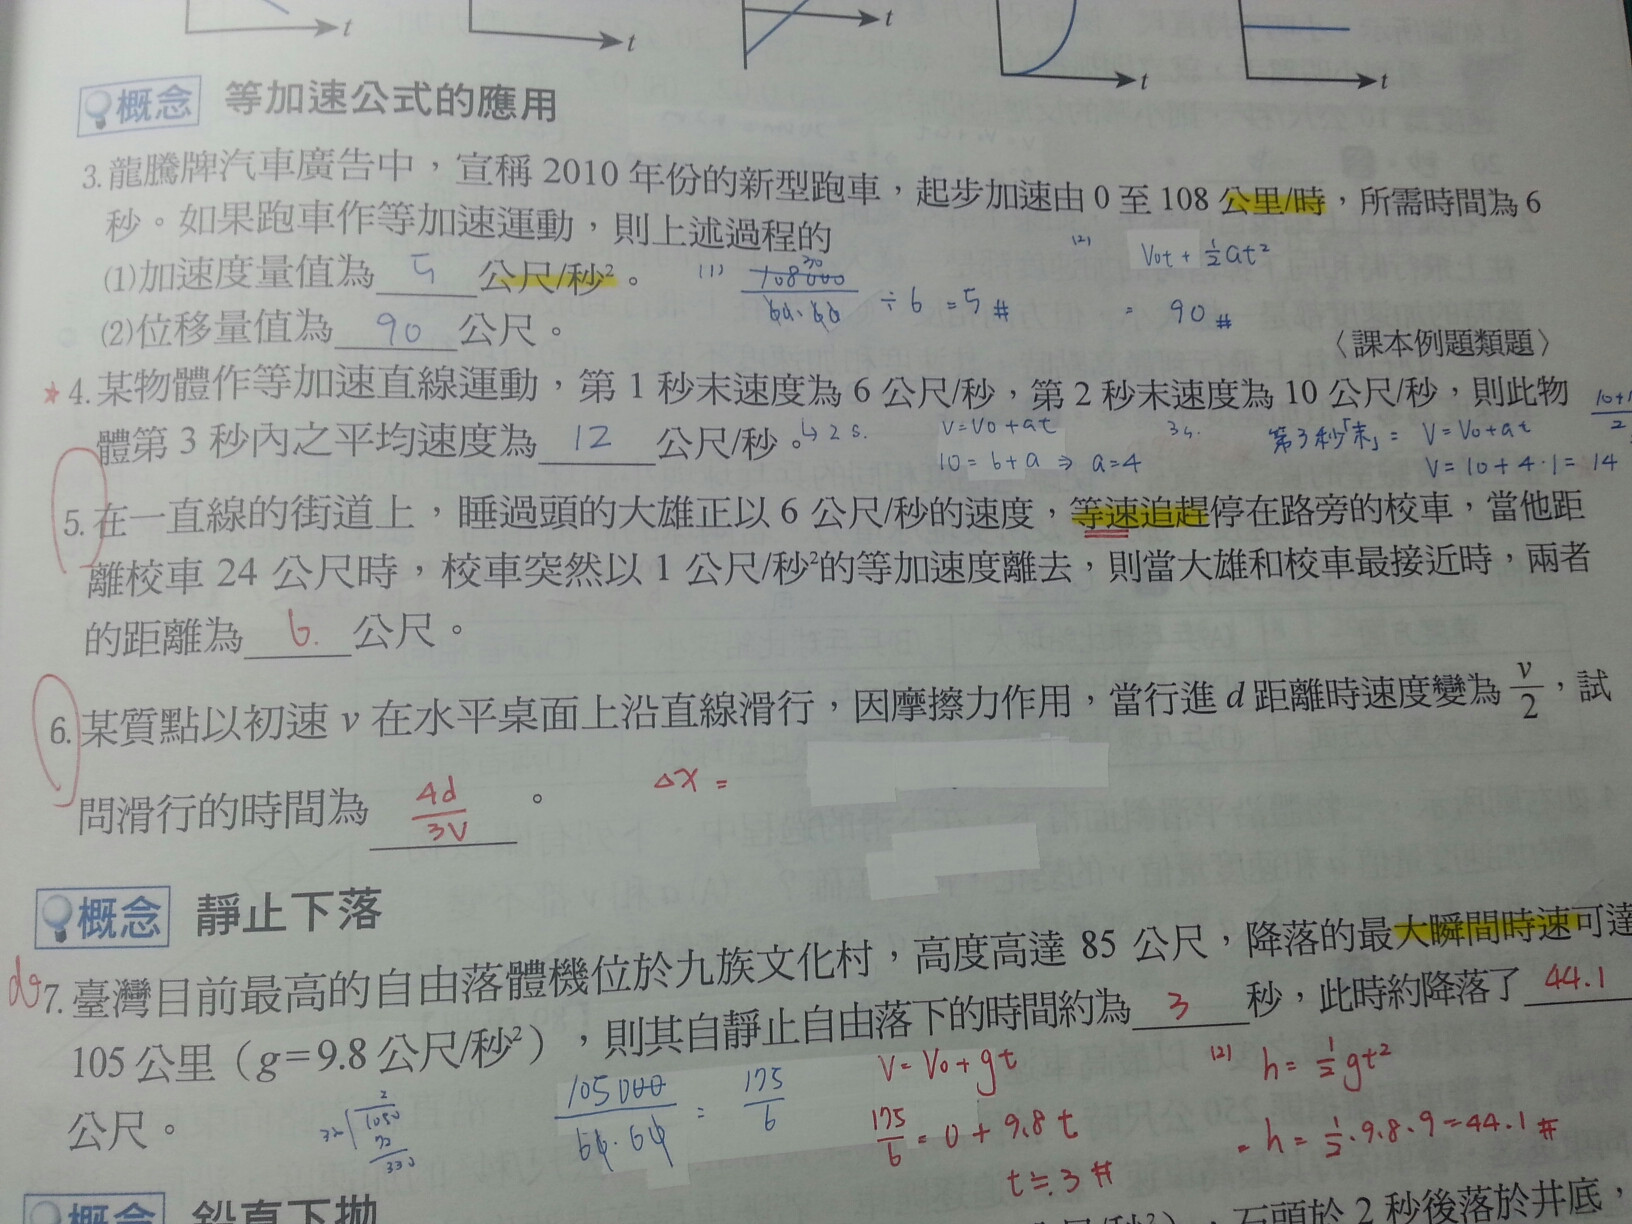 t
t
t
t
t
概念 等加速公式的應用
3.龍騰牌汽車廣告中，宣稱 2010 年份的新型跑車，起步加速由 0 至 108 公里/時，所需時間為 6
秒。如果跑車作等加速運動，則上述過程的
(1)加速度量值為 5 公尺/秒²。
(1) 108000 30 / 60·60 ÷ 6 = 5 #
(2) V₀t + ½at²
= 90 #
(2)位移量值為 90 公尺。
〈課本例題類題〉
★4.某物體作等加速直線運動，第 1 秒末速度為 6 公尺/秒，第 2 秒末速度為 10 公尺/秒，則此物
體第 3 秒內之平均速度為 12 公尺/秒。
↳ 2 s. V=V₀+at
10=6+a ⇒ a=4
第3秒「末」= V=V₀+at
V=10+4·1=14
5.在一直線的街道上，睡過頭的大雄正以 6 公尺/秒的速度，等速追趕停在路旁的校車，當他距
離校車 24 公尺時，校車突然以 1 公尺/秒²的等加速度離去，則當大雄和校車最接近時，兩者
的距離為 6. 公尺。
6.某質點以初速 v 在水平桌面上沿直線滑行，因摩擦力作用，當行進 d 距離時速度變為 v/2，試
問滑行的時間為 4d/3V 。
△x =
概念 靜止下落
7.臺灣目前最高的自由落體機位於九族文化村，高度高達 85 公尺，降落的最大瞬間時速可達
105 公里（g=9.8 公尺/秒²），則其自靜止自由落下的時間約為 3 秒，此時約降落了 44.1
公尺。
105000 / 60·60 = 175/6
V=V₀+gt
175/6 = 0+9.8t
t≒3 #
(2) h=½gt²
h=½·9.8·9=44.1 #
概念 鉛直下拋
石頭於 2 秒後落於井底，